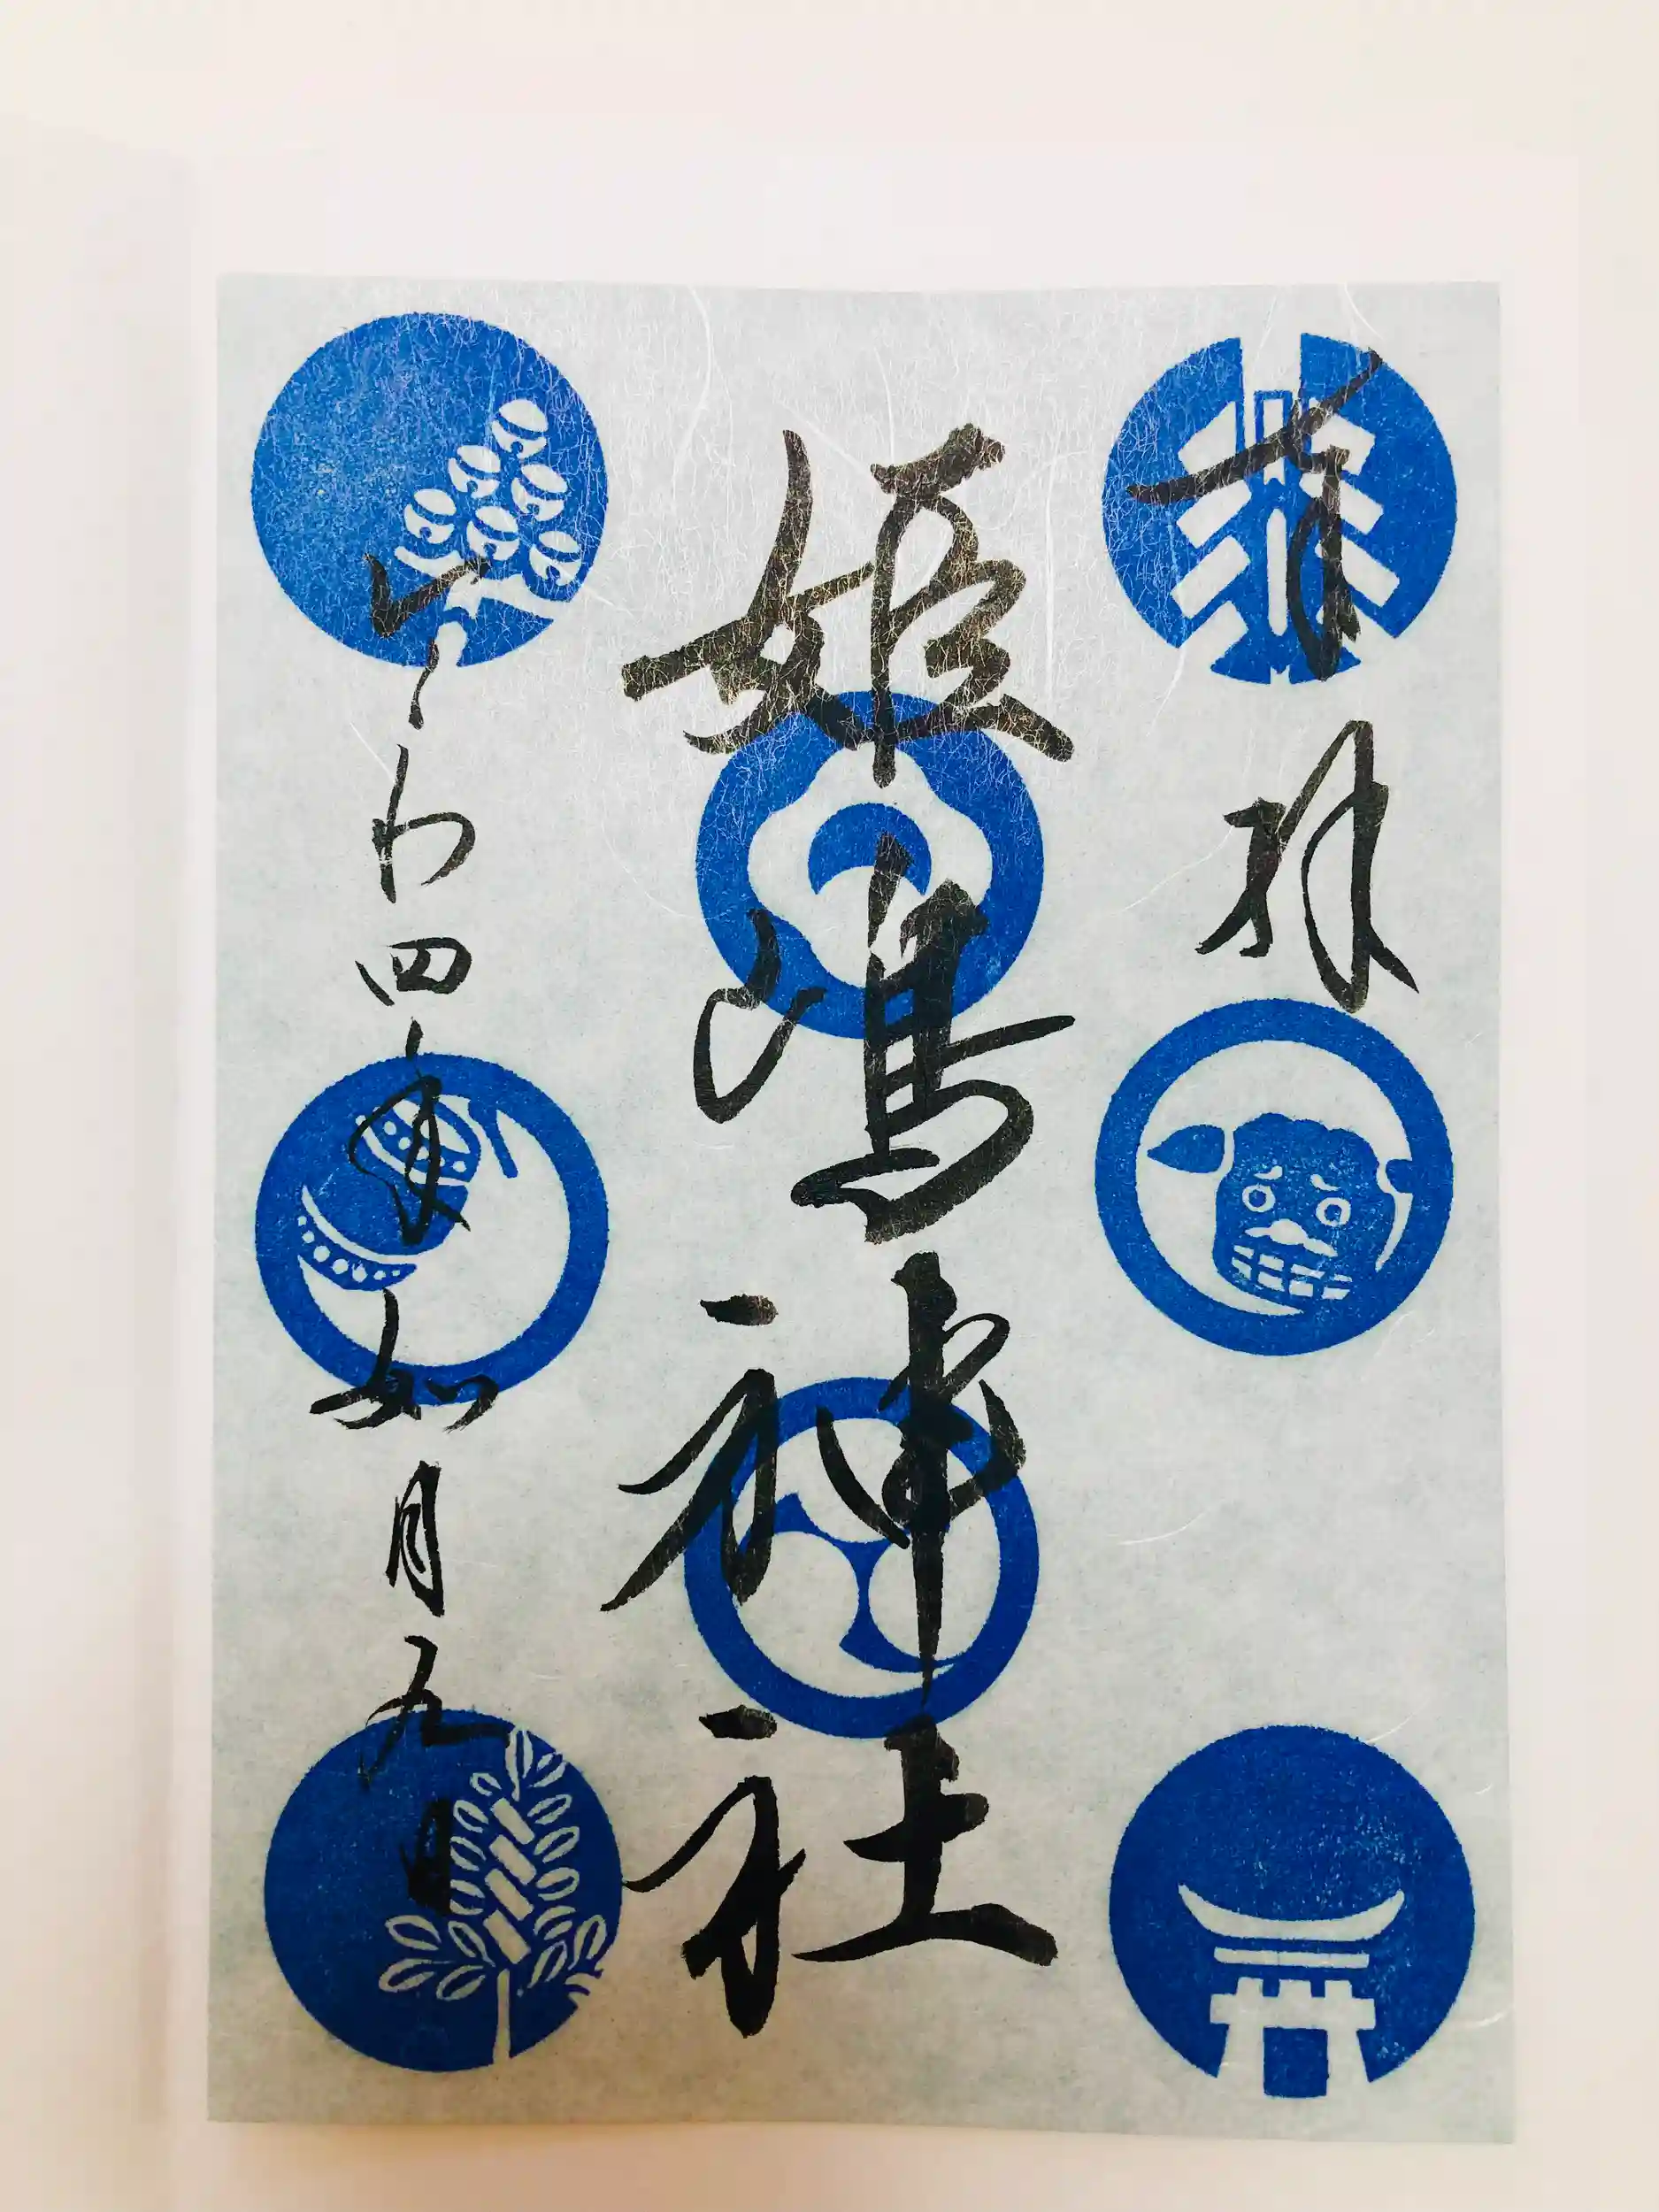 奉拝
姫嶋神社
令わ四年如月九日